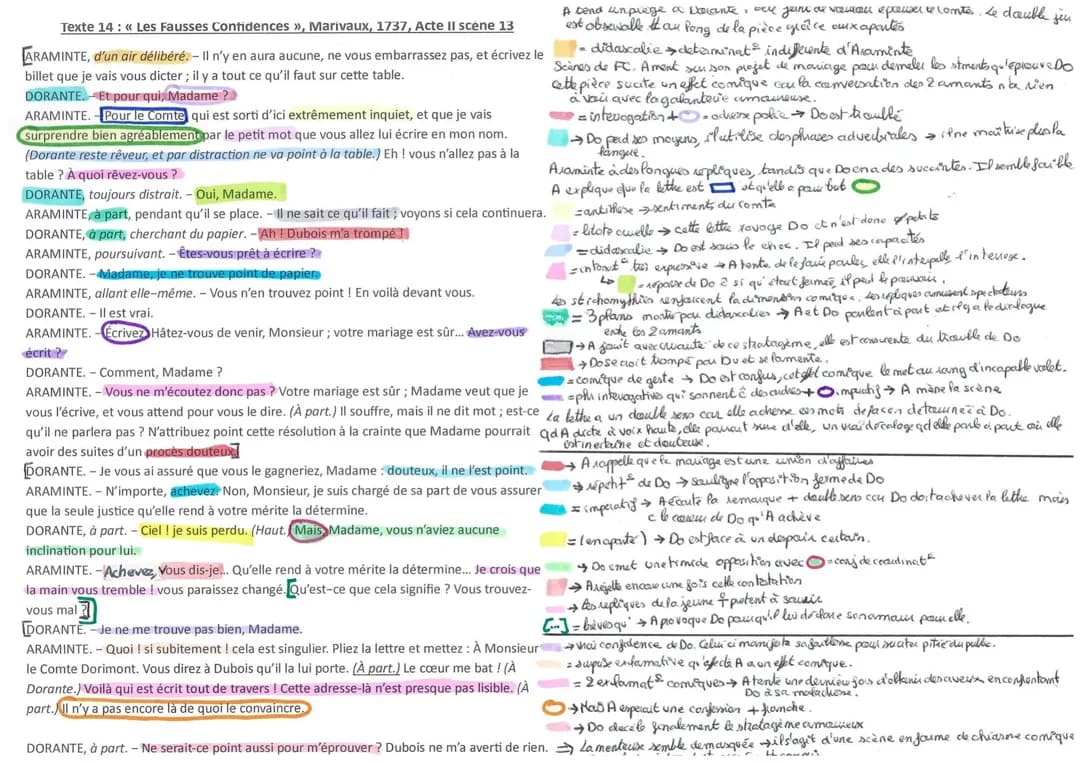 Texte 14 : « Les Fausses Confidences », Marivaux, 1737, Acte II scène 13
ARAMINTE, d'un air délibéré. – Il n'y en aura aucune, ne vous embarrassez pas, et écrivez le
billet que je vais vous dicter ; il y a tout ce qu'il faut sur cette table.
DORANTE. – Et pour qui, Madame ?
ARAMINTE. – Pour le Comte, qui est sorti d'ici extrêmement inquiet, et que je vais
surprendre bien agréablement par le petit mot que vous allez lui écrire en mon nom.
(Dorante reste rêveur, et par distraction ne va point à la table.) Eh ! vous n'allez pas à la
table ? À quoi rêvez-vous ?
DORANTE, toujours distrait. – Oui, Madame.
ARAMINTE, à part, pendant qu'il se place. – Il ne sait ce qu'il fait ; voyons si cela continuera.
DORANTE, à part, cherchant du papier. – Ah ! Dubois m'a trompé !
ARAMINTE, poursuivant. – Êtes-vous prêt à écrire ?
DORANTE. – Madame, je ne trouve point de papier.
ARAMINTE, allant elle-même. – Vous n'en trouvez point ! En voilà devant vous.
DORANTE. – Il est vrai.
ARAMINTE. – Écrivez. Hâtez-vous de venir, Monsieur ; votre mariage est sûr... Avez-vous
écrit ?
DORANTE. – Comment, Madame ?
ARAMINTE. – Vous ne m'écoutez donc pas ? Votre mariage est sûr ; Madame veut que je
vous l'écrive, et vous attend pour vous le dire. (À part.) Il souffre, mais il ne dit mot ; est-ce
qu'il ne parlera pas ? N'attribuez point cette résolution à la crainte que Madame pourrait
avoir des suites d'un procès douteux.
DORANTE. – Je vous ai assuré que vous le gagneriez, Madame : douteux, il ne l'est point.
ARAMINTE. – N'importe, achevez. Non, Monsieur, je suis chargé de sa part de vous assurer
que la seule justice qu'elle rend à votre mérite la détermine.
DORANTE, à part. – Ciel ! je suis perdu. (Haut.) Mais, Madame, vous n'aviez aucune
inclination pour lui.
ARAMINTE. – Achevez, vous dis-je... Qu'elle rend à votre mérite la détermine... Je crois que
la main vous tremble ! vous paraissez changé. Qu'est-ce que cela signifie ? Vous trouvez-
vous mal ?
DORANTE. – Je ne me trouve pas bien, Madame.
ARAMINTE. – Quoi ! si subitement ! cela est singulier. Pliez la lettre et mettez : À Monsieur
le Comte Dorimont. Vous direz à Dubois qu'il la lui porte. (À part.) Le cœur me bat ! (À
Dorante.) Voilà qui est écrit tout de travers ! Cette adresse-là n'est presque pas lisible. (À
part.) Il n'y a pas encore là de quoi le convaincre.
DORANTE, à part. – Ne serait-ce point aussi pour m'éprouver ? Dubois ne m'a averti de rien.
A tend un piège à Dorante
est observable tt au long de la pièce grâce aux apartés
= didascalie → déterminat° indifférente d'Araminte
Scènes de FC. A ment sur son projet de mariage pour démeler les stments qu'éprouve Do
cette pièce sucite un effet comique car la conversation des 2 amants n'a rien
à voir avec la galanterie amoureuse.
= interrogation + = adverse polie → Do est troublé
→ Do perd ses moyens, il utilise des phrases adverbiales → il ne maîtrise plus la
langue.
Araminte a des longues répliques, tandis que Do en a des succintes. Il semble faible
A explique que la lettre est et qu'elle a pour but
= antithèse → sentiments du comte
= litote cruelle → cette lettre ravage Do et n'est donc petite
= didascalie → Do est sous le choc. Il perd ses capacités
= intonat° très expressive → A tente de le faire parler, elle l'interpelle + l'interroge.
= réponse de Do 2 si qu° étant fermée, il perd le pouvoir.
Les stichomythies renforcent la dimension comique. Les répliques amusent spectateurs
= 3 plans montré par didascalies → A et Do parlent à part et il y a le dialogue
entre les 2 amants
→ A jouit avec cruauté de ce stratagème, elle est consciente du trouble de Do
→ Do se croit trompé par Du et se lamente.
= comique de geste → Do est confus, cet effet comique le met au rang d'incapable valet.
= phr interrogatives qui sonnent cê des ordres + impératif → A mène la scène
La lettre a un double sens car elle adresse ces mots de façon détournée à Do.
qd A dicte à voix haute, elle parait sure d'elle, un vrai décalage qd elle parle à part où elle
est incertaine et douteuse.
→ A rappelle que le mariage est une union d'affaires
→ répétit° de Do → souligne l'opposition ferme de Do
= impératif → A écoute la remarque + double sens car Do doit achever la lettre mais
c le cœur de Do qu'A achève
= (en aparté) → Do est face à un désespoir certain.
→ Do émet une timide opposition avec = conj de coordinat°
→ A rejette encore une fois cette contestation
→ Les répliques de la jeune ♀ prêtent à sourir
[...] = brèves qu° → A provoque Do pour qu'il lui déclare son amour pour elle.
→ vrai confidence de Do. Celui ci manifeste sa faiblesse pour susciter pitié du public.
= surprise exclamative qu'affecte A a un effet comique.
= 2 exclamat° comiques → A tente une dernière fois d'obtenir des aveux en confrontant
Do à sa maladresse.
→ Mais A espérait une confession + franche.
→ Do décèle finalement le stratagème amoureux
⇒ La menteuse semble démasquée → il s'agit d'une scène en forme de chiasme comique